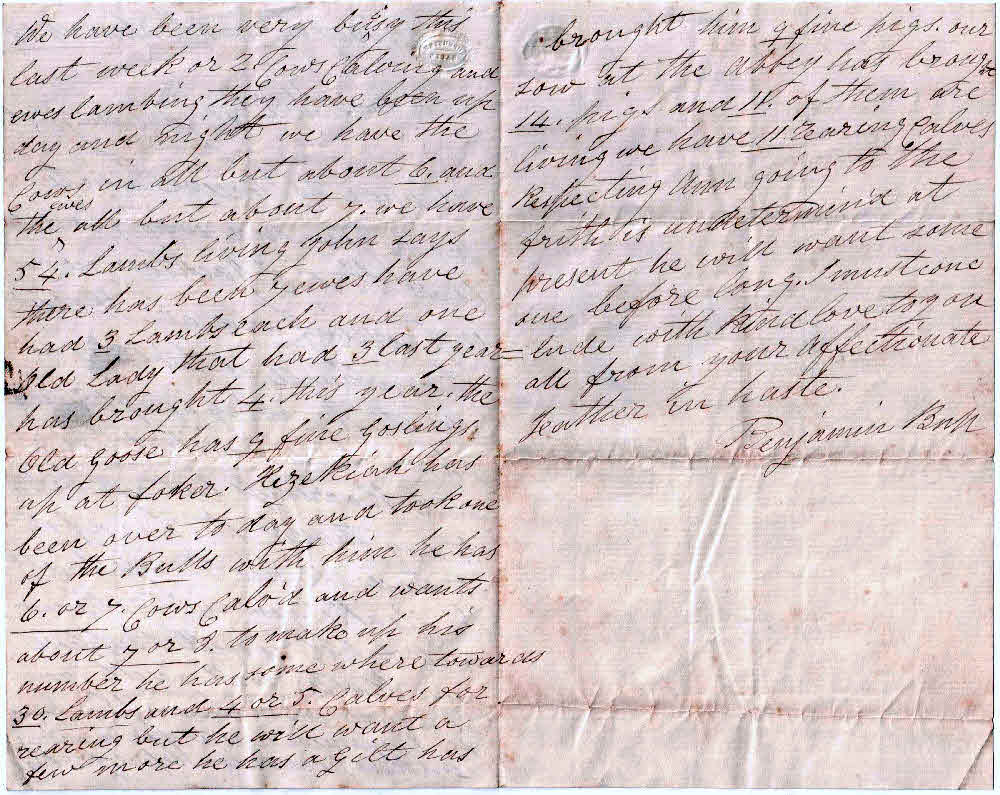 We have been very bu[sy] this
last week or 2 Cows Calving and
ewes lambing they have been up
day and night we have the
Cows in all but about 6. and
ewes
the all but about 7. we have
54. Lambs living John says
there has been 7 ewes have
had 3 Lambs each and one
Old Lady that had 3 last year
has brought 4. this year. the
Old Goose has 9 fine Goslings
up at foker. Hezekiah has
been over to day and took one
of the Bulls with him he has
6. or 7. Cows Calv'd and wants
about 7 or 8. to make up his
number he has some where towards
30. Lambs and 4 or 5. Calves for
rearing but he will want a
few more he has a Gilt has
brought him 9 fine pigs. our
sow at the abbey has brought
14. pigs and 11. of them are
living we have 11 rearing Calves
Respecting Ann going to the
frith is undetermin'd at
present he will want some
one before long. I must conc
=lude with kind love to you
all from your affectionate
Father in haste.
Benjamin